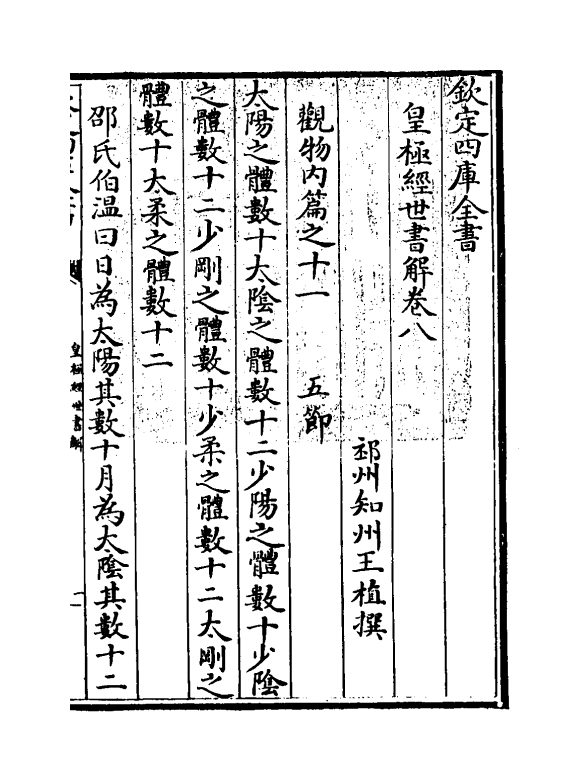 欽定四庫全書
皇極經世書解卷八
邳州知州王植撰
觀物内篇之十一　五節
太陽之體數十太陰之體數十二少陽之體數十少陰
之體數十二少剛之體數十少柔之體數十二太剛之
體數十太柔之體數十二
邵氏伯温曰日為太陽其數十月為太陰其數十二
皇極經世書解